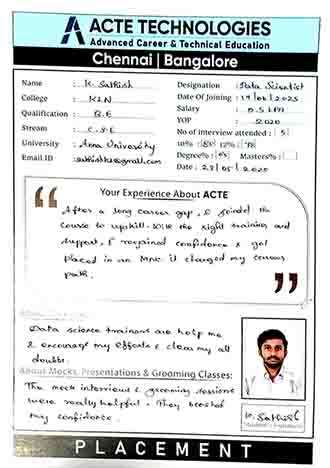 ACTE TECHNOLOGIES
Advanced Career & Technical Education
Chennai | Bangalore
Name : K. Sathish
College : KLN
Qualification : B.E
Stream : C.S.E
University : Anna University
Email ID
Designation : Data Scientist
Date Of Joining
Salary
YOP : 2020
No of interview attended : 5
10% : 12% :
Degree% : Masters% :
Date : 28/05/2025
Your Experience About ACTE
After a long career gap, I joined the
course to upskill. With the right training and
support, I regained confidence & got
placed in an MNC. it changed my career
path.
Data science trainers are help me
& encourage my efforts & clear my all
doubts.
About Mocks, Presentations & Grooming Classes:
The mock interviews & grooming sessions
were really helpful. They boosted
my confidence.
K. Sathish
PLACEMENT